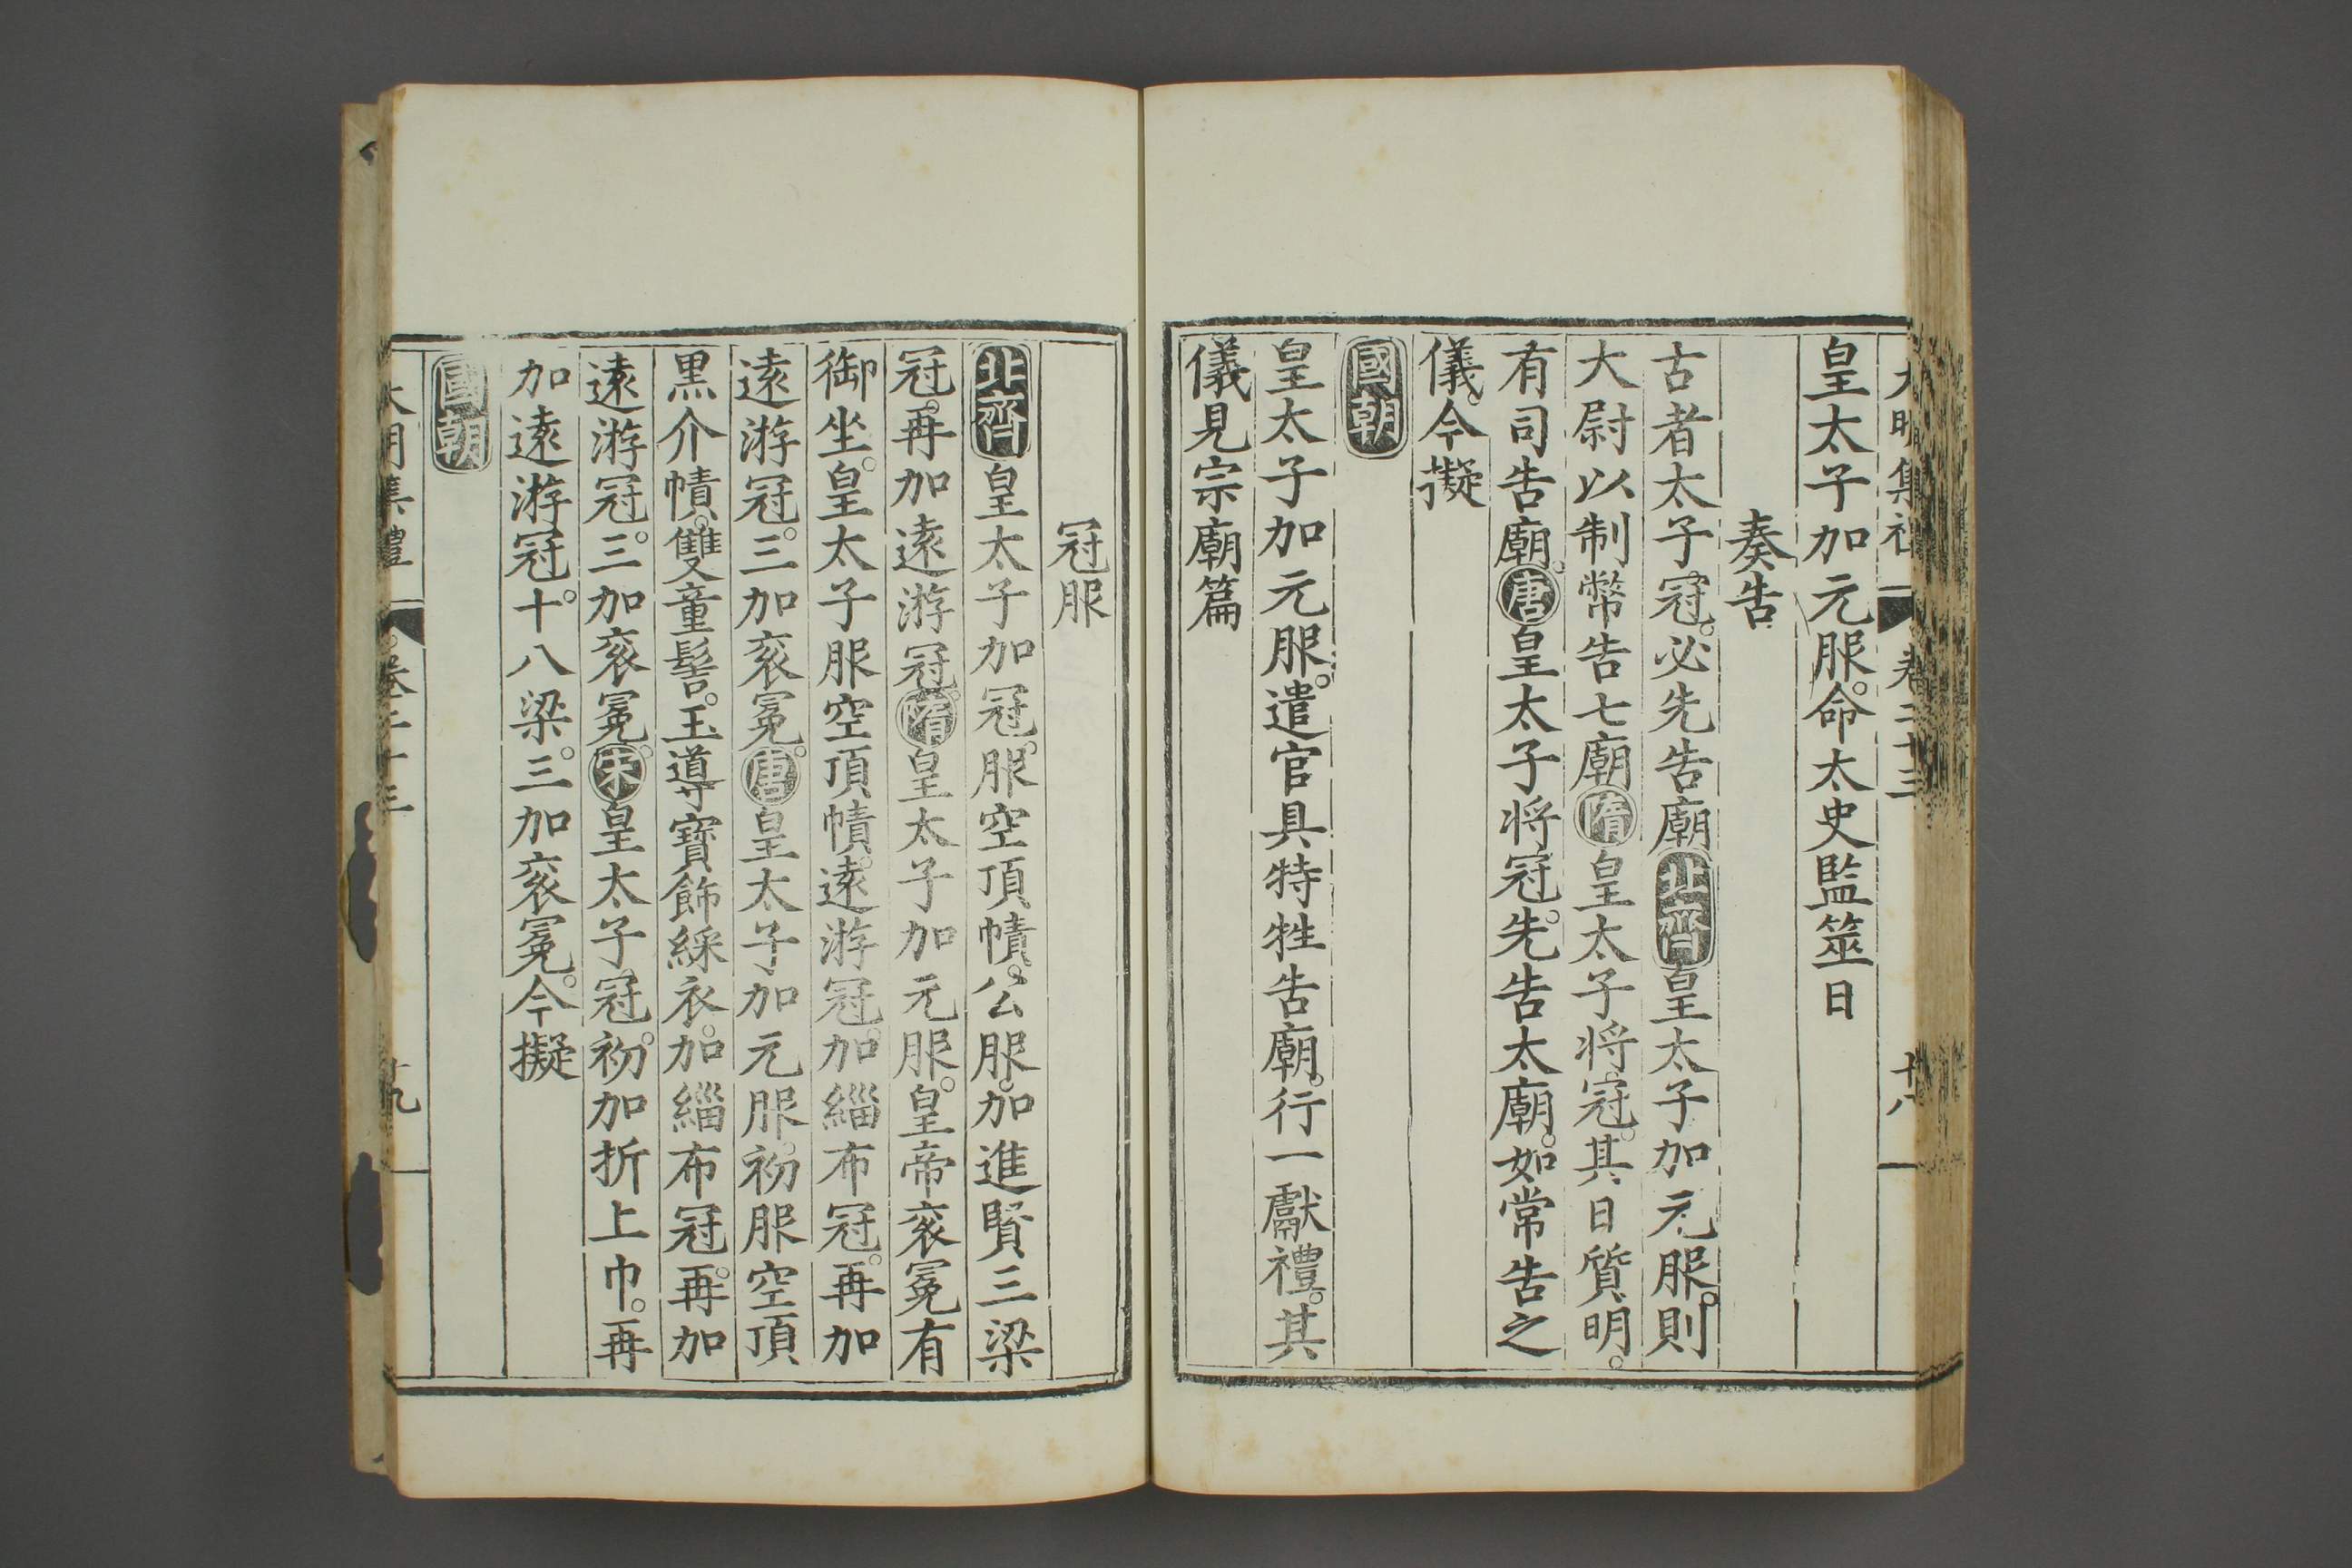 大明集禮 卷二十三 十八
皇太子加元服。命太史監筮日
奏告
古者太子冠。必先告廟北齊皇太子加元服。則
大尉以制幣告七廟隋皇太子将冠。其日質明。
有司告廟。唐皇太子将冠。先告太廟。如常告之
儀。今擬
國朝
皇太子加元服。遣官具特牲告廟。行一獻禮。其
儀見宗廟篇
冠服
北齊皇太子加冠。服空頂幘。公服。加進賢三梁
冠。再加逺游冠。隋皇太子加元服。皇帝衮冕有
御坐。皇太子服空頂幘。逺游冠。加緇布冠。再加
逺游冠。三加衮冕。唐皇太子加元服。初服空頂
黒介幘。雙童髻。玉導寳飾綵衣。加緇布冠。再加
逺游冠。三加衮冕。宋皇太子冠。初加折上巾。再
加逺游冠。十八梁。三加衮冕。今擬
國朝
大明集禮 卷二十三 十九